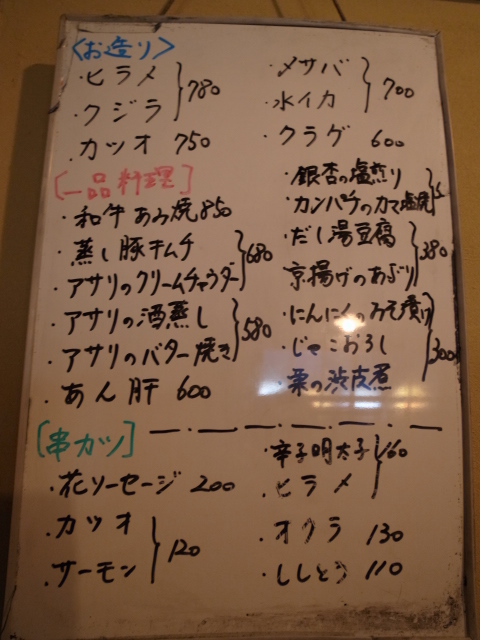 〈お造り〉
・ヒラメ
・クジラ
780
・カツオ 750
・メサバ
・水イカ
700
・クラゲ 600
[一品料理]
・和牛あみ焼 850
・蒸し豚キムチ
・アサリのクリームチャウダー
680
・アサリの酒蒸し
・アサリのバター焼き
580
・あん肝 600
・銀杏の塩煎り
・カンパチのカマ塩焼
・だし湯豆腐
京揚げのあぶり
380
・にんにくのみそ漬け
・じゃこおろし
・栗の渋皮煮
300
[串カツ]
・花ソーセージ 200
・カツオ
・サーモン
120
・辛子明太子
・ヒラメ
160
・オクラ 130
・ししとう 110